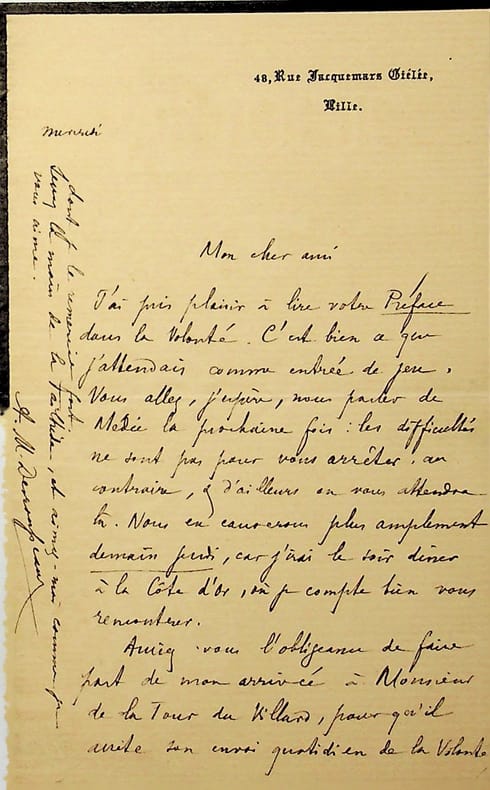 48, Rue Jacquemars Giélée,
Lille.
Mercredi
Mon cher ami
J'ai pris plaisir à lire votre Préface
dans la Volonté. C'est bien ce que
j'attendais comme entrée de jeu.
Vous allez, j'espère, nous parler de
la prochaine fois : les difficultés
ne sont pas pour vous arrêter. au
contraire, & d'ailleurs on vous attendra
là. Nous en causerons plus amplement
demain jeudi, car j'irai le soir diner
à la Côte d'or, où je compte bien vous
rencontrer.
Auriez-vous l'obligeance de faire
part de mon arrivée à Monsieur
de la Tour du Villard, pour qu'il
arrête son envoi quotidien de la Volonté
dont je le remercie fort.
Serrez la main de la et aimez-moi comme je
vous aime.
A. M. Desrousseaux